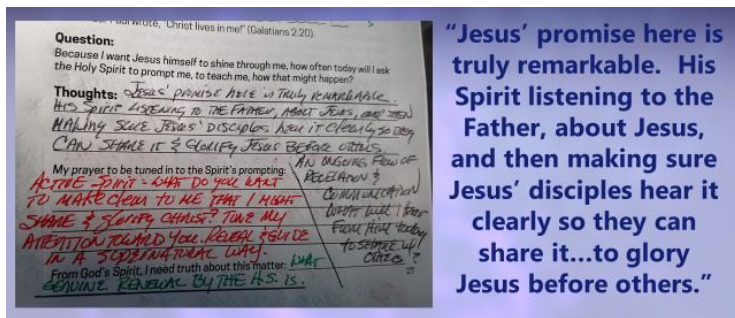 Paul wrote, "Christ lives in me!" (Galatians 2:20).
Question:
Because I want Jesus himself to shine through me, how often today will I ask
the Holy Spirit to prompt me, to teach me, how that might happen?
Thoughts: Jesus' promise here is truly remarkable.
His Spirit listening to the Father, about Jesus, and then
making sure Jesus' disciples hear it clearly so they
can share it & glorify Jesus before others.
My prayer to be tuned in to the Spirit's prompting:
Active Spirit - what do you want
to make clear to me that I might
share & glorify Christ? Tune my
attention toward you. Reveal & guide
in a supernatural way.
An ongoing flow of
revelation &
communication
what will I hear
from Him today
to share w/
others?
From God's Spirit, I need truth about this matter: what
genuine renewal by the H.S. is.
"Jesus' promise here is
truly remarkable. His
Spirit listening to the
Father, about Jesus,
and then making sure
Jesus' disciples hear it
clearly so they can
share it...to glory
Jesus before others."